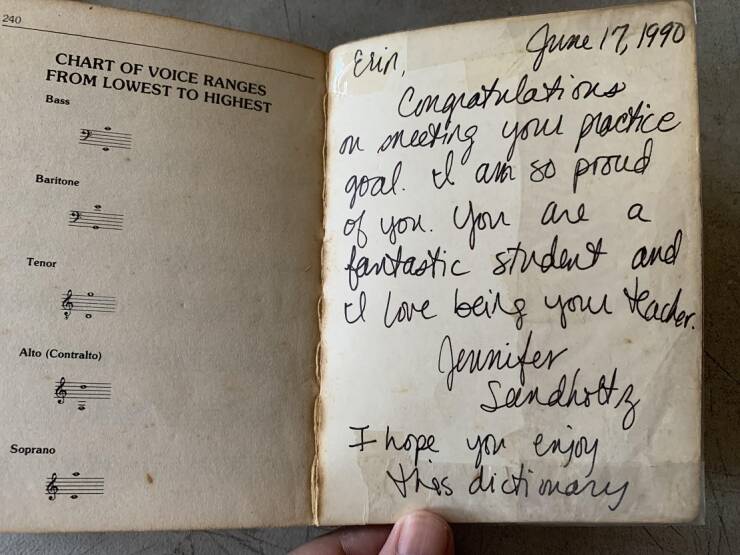 240
CHART OF VOICE RANGES
FROM LOWEST TO HIGHEST
Bass
Baritone
Tenor
Alto (Contralto)
Soprano
June 17, 1990
Erin,
Congratulations
on meeting your practice
goal. I am so proud
of you. You are a
fantastic student and
I love being your teacher.
Jennifer
Sandholtz
I hope you enjoy
this dictionary